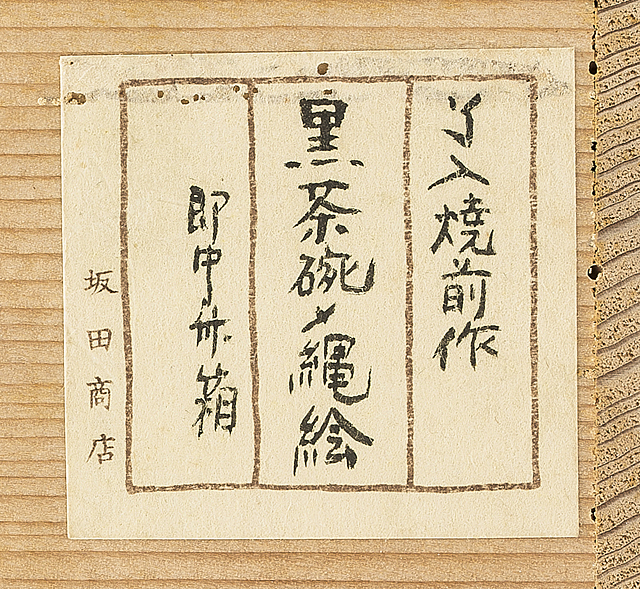 了入焼前作
黒茶碗〆縄絵
即中斎箱
坂田商店